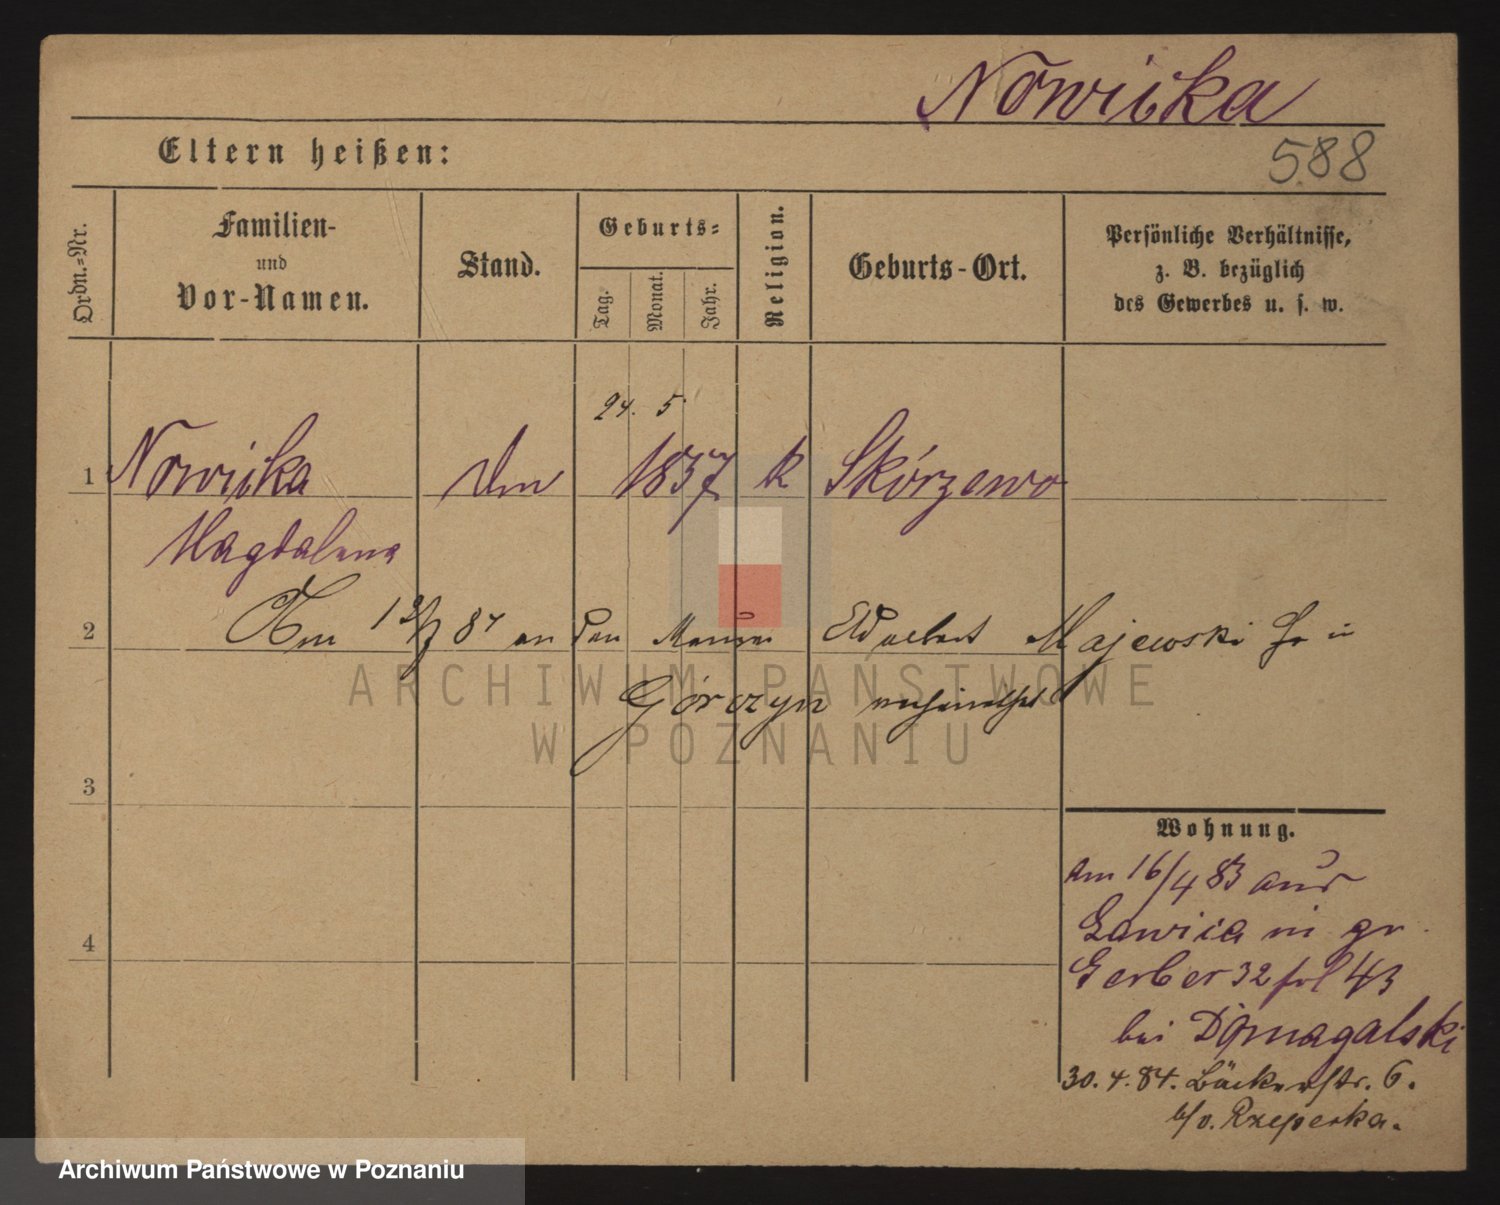 Nowicka
588
Eltern heißen:
Ordn.-Nr.
Familien-
und
Vor-Namen.
Stand.
Geburts-
Tag.
Monat.
Jahr.
Religion.
Geburts-Ort.
Persönliche Verhältnisse,
z. B. bezüglich
des Gewerbes u. s. w.
24. 5
1 Nowicka 1837 k Skórzewo
Magdalena
2 Am 87 an den Maurer Adalbert Majewski hier in
Górczyn verheirathet
3
4
Wohnung.
am 16/4 83 aus
Lawica in gr
Gerber 32 fol 43
bei Domagalski
30. 4. 84. Bäckerstr. 6.
b/v. Rzepecka.
ARCHIWUM PAŃSTWOWE
W POZNANIU
Archiwum Państwowe w Poznaniu